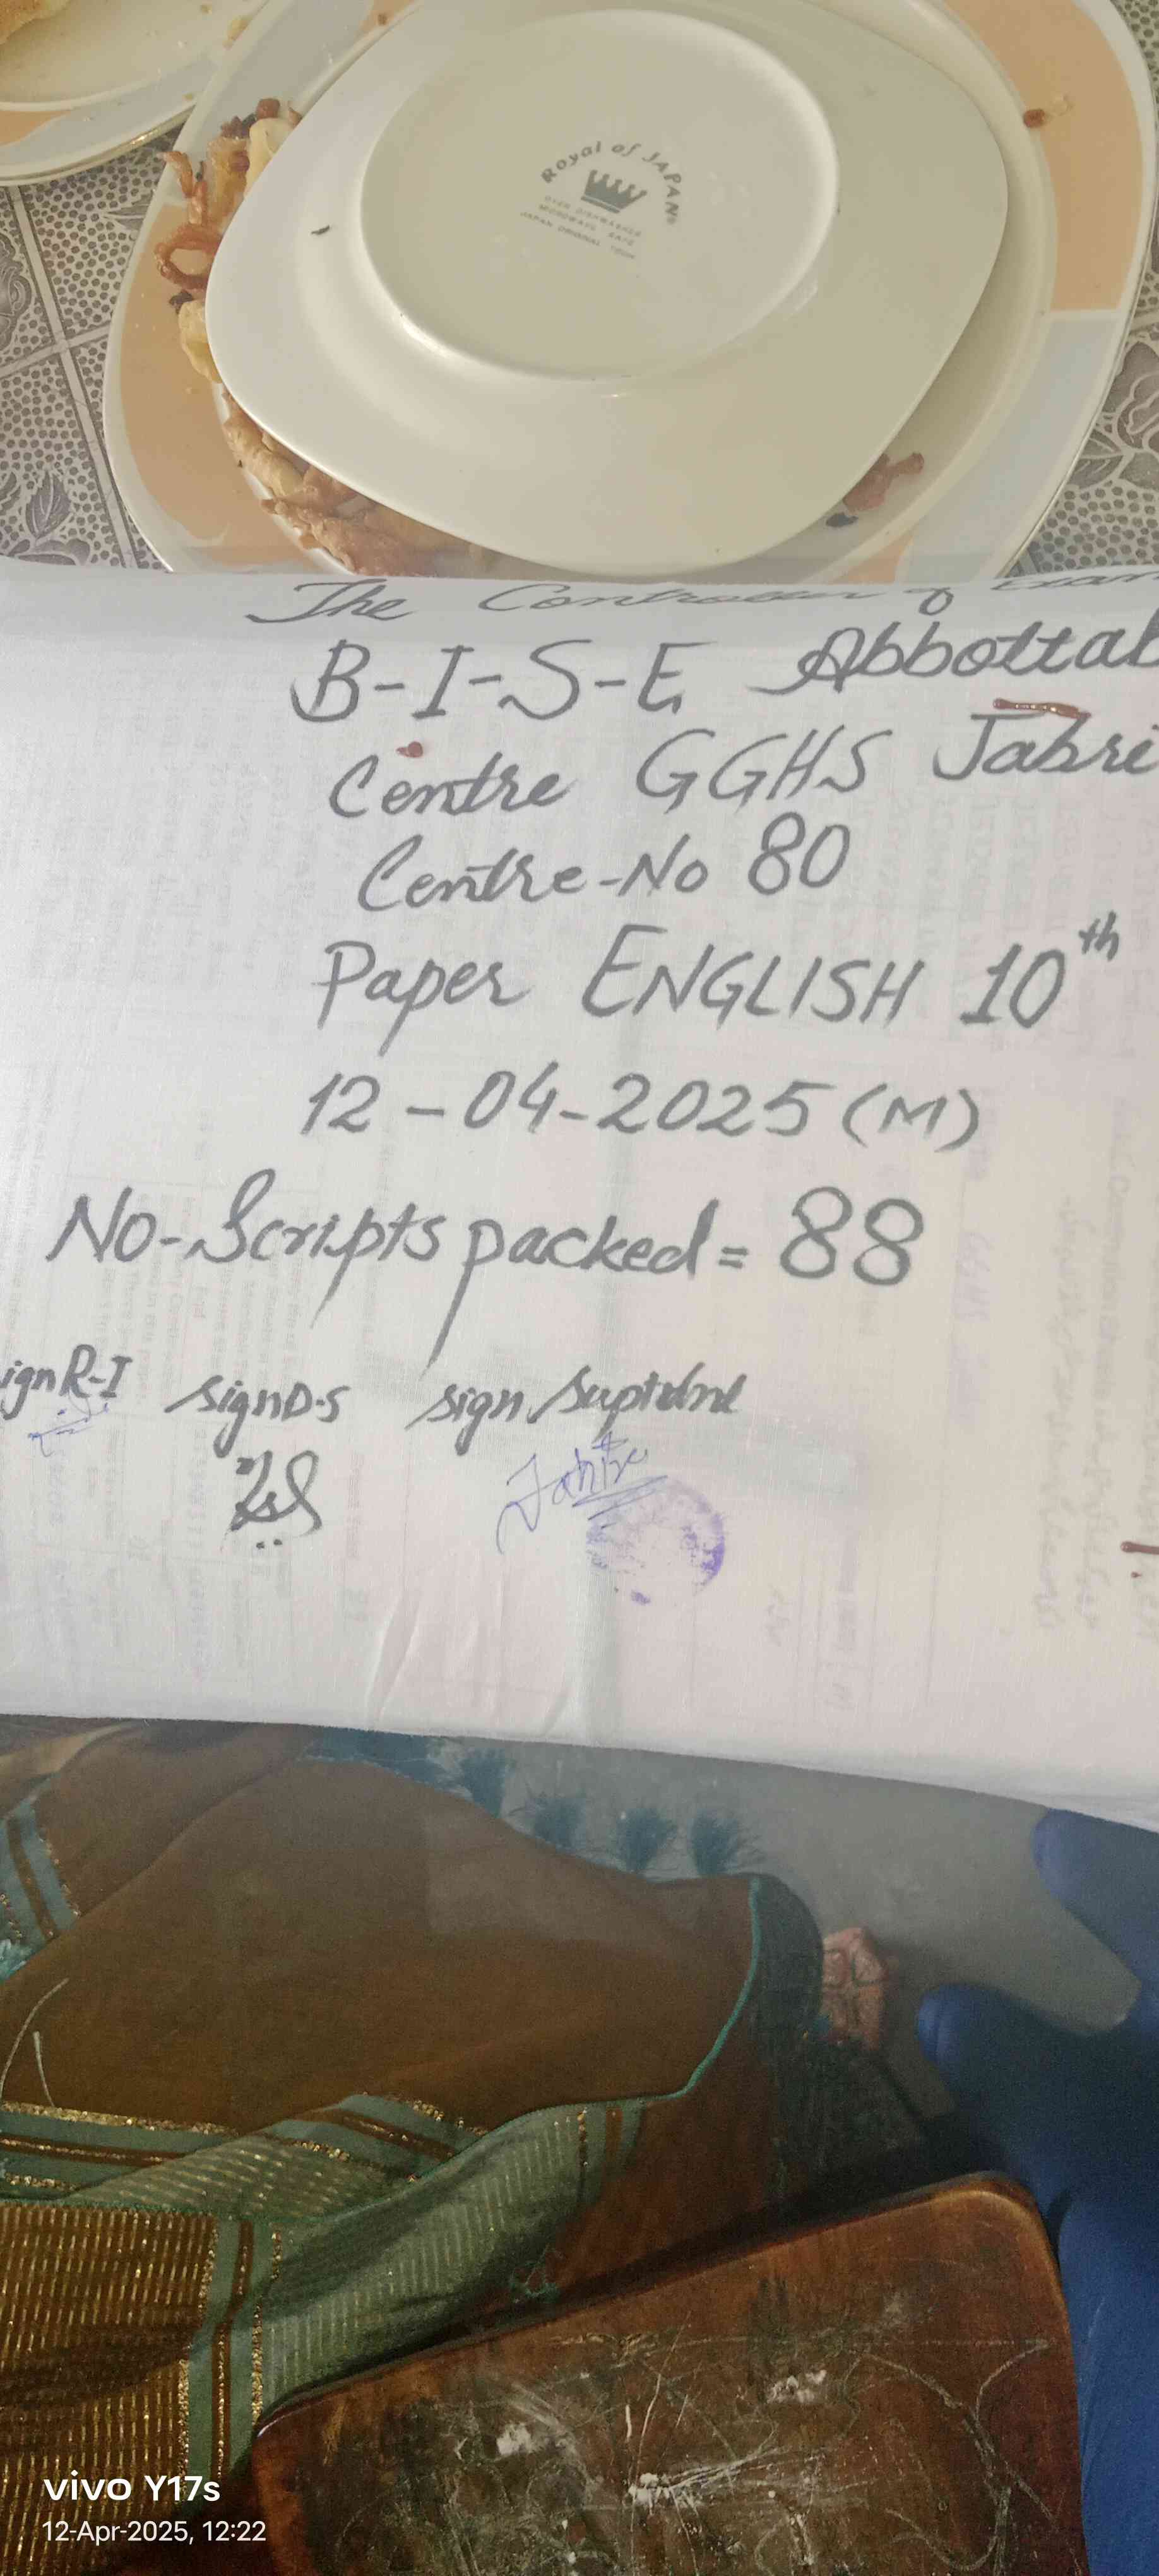 Royal of JAPAN
The Controller of Exam
B-I-S-E Abbottab
Centre GGHS Jabri
Centre-No 80
Paper ENGLISH 10th
12-04-2025 (M)
No-Scripts packed = 88
ign R-I sign D.S sign Suptdnt
vivo Y17s
12-Apr-2025, 12:22